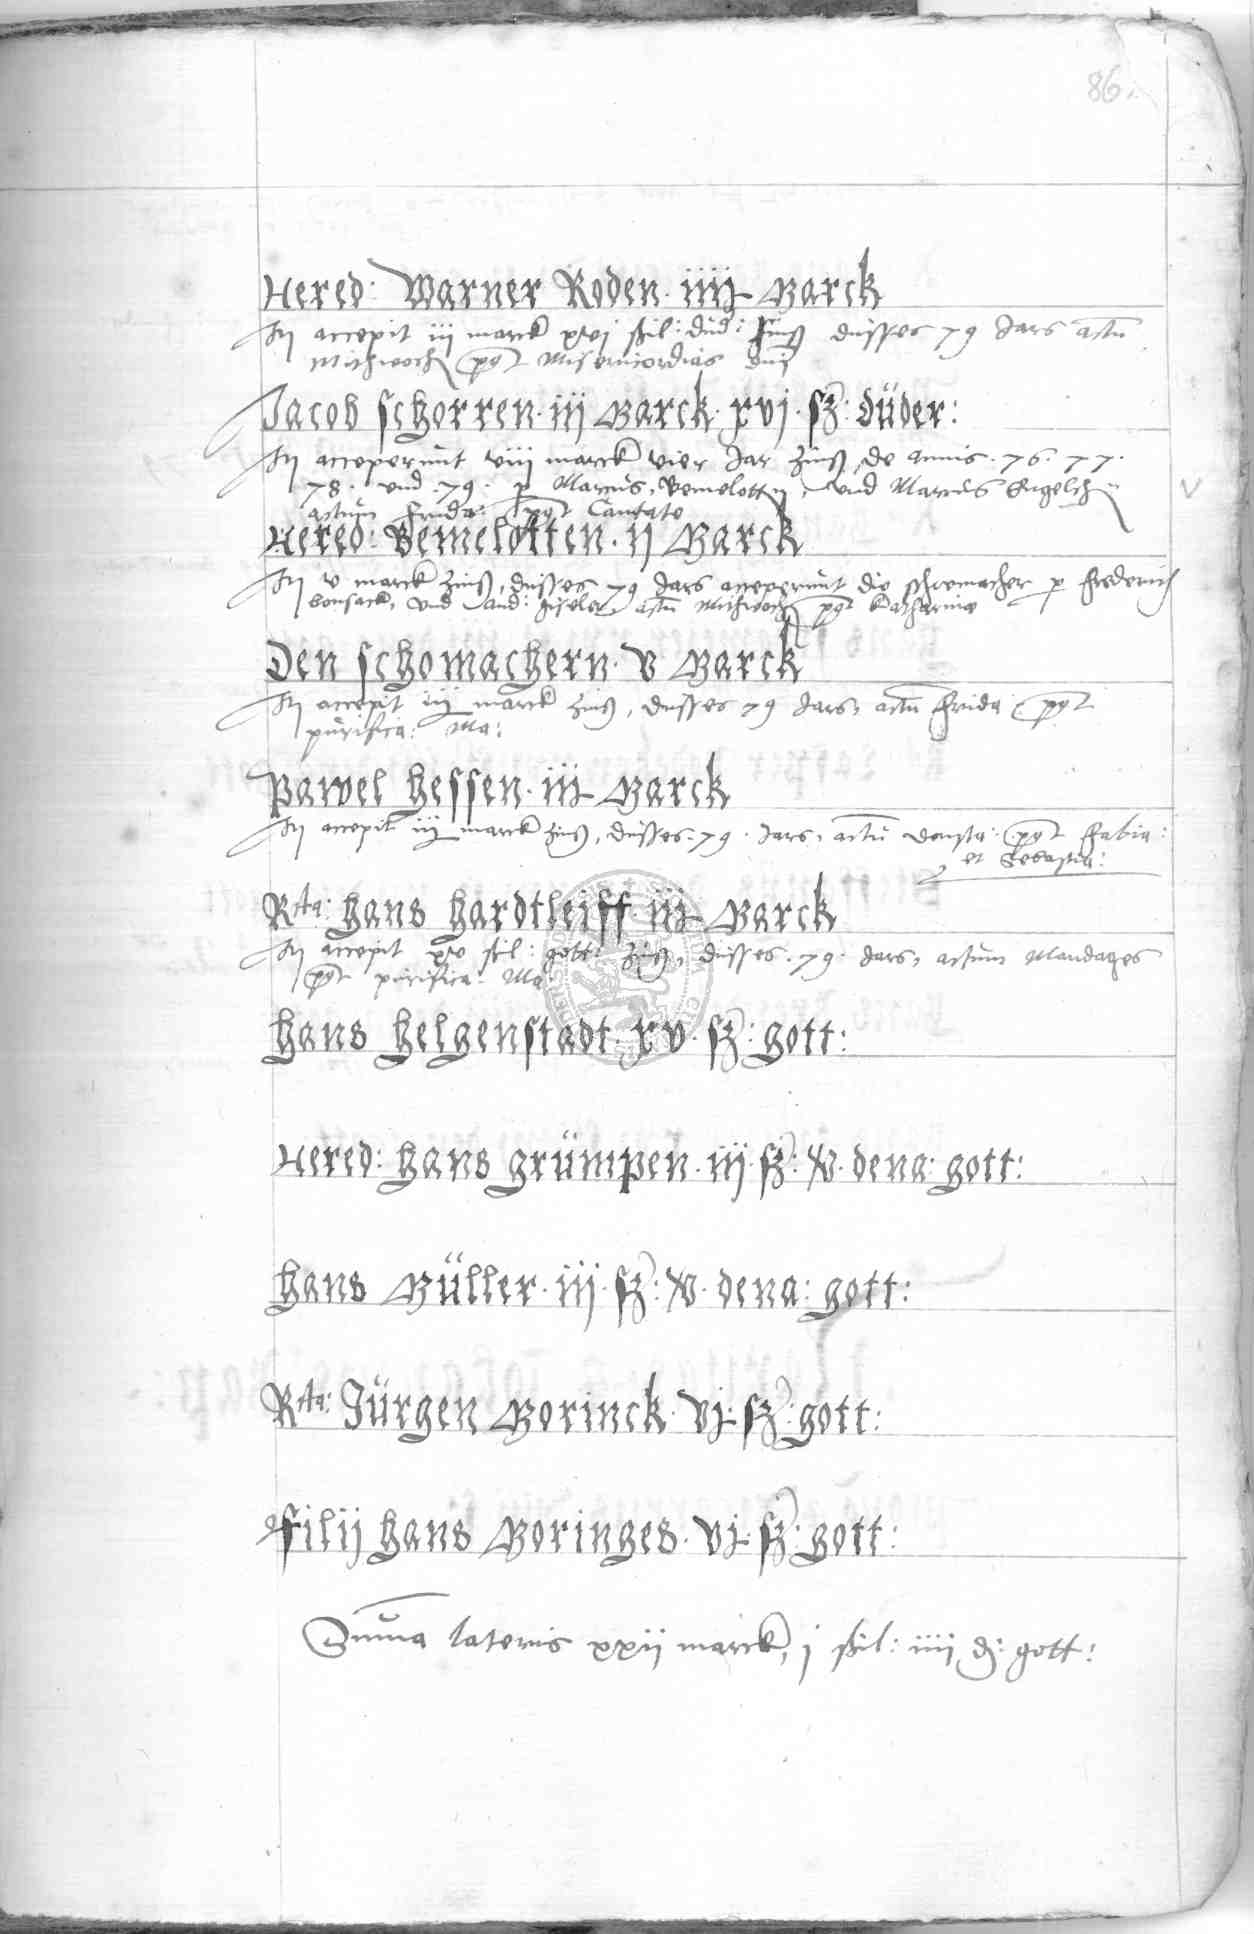 86.
Hered: Warner Roden · iiij Marck
It accepit iij marck xvj ßil: dud: zinß dusses 79 Jars actũ
Mithwoch post Misericordias dnj
Jacob schorren · iij Marck · xvj · sz: düder:
It acceperunt viij marck vier Jar zinß, de annis · 76 · 77 ·
78 · und · 79 · p Marcus, Bemelotten, und Marcus Engelch
actum Frida: post Cantate
Hered: Bemelotten · ij Marck
It v marck zinß, dusses 79 Jars acceperunt die schomacher p Frederich
bonsack, und And: giseler, actũ Mithwoch post Katharine
Den schomachern · v Marck
It accepit iij marck zinß, dusses 79 Jars, actũ Frida post
purifica: Ma:
Pawel hessen · iij Marck
It accepit iij marck zinß, dusses · 79 · Jars, actũ donsta: post Fabia:
et Sebastia:
Rta: hans hardtleiff · iij Marck
It accepit xv ßil: gott: zinß, dusses · 79 · Jars, actum Mandages
post purifica: Ma:
hans helgenstadt · xv · sz: gott:
Hered: hans grümpen · iij · sz: v · dena: gott:
hans Müller · iij · sz: v · dena: gott:
Rta: Jürgen Morinck · vj · sz: gott:
filij hans Moringes · vj · sz: gott:
Suma lateris xxij marck, j ßil: iiij d: gott: